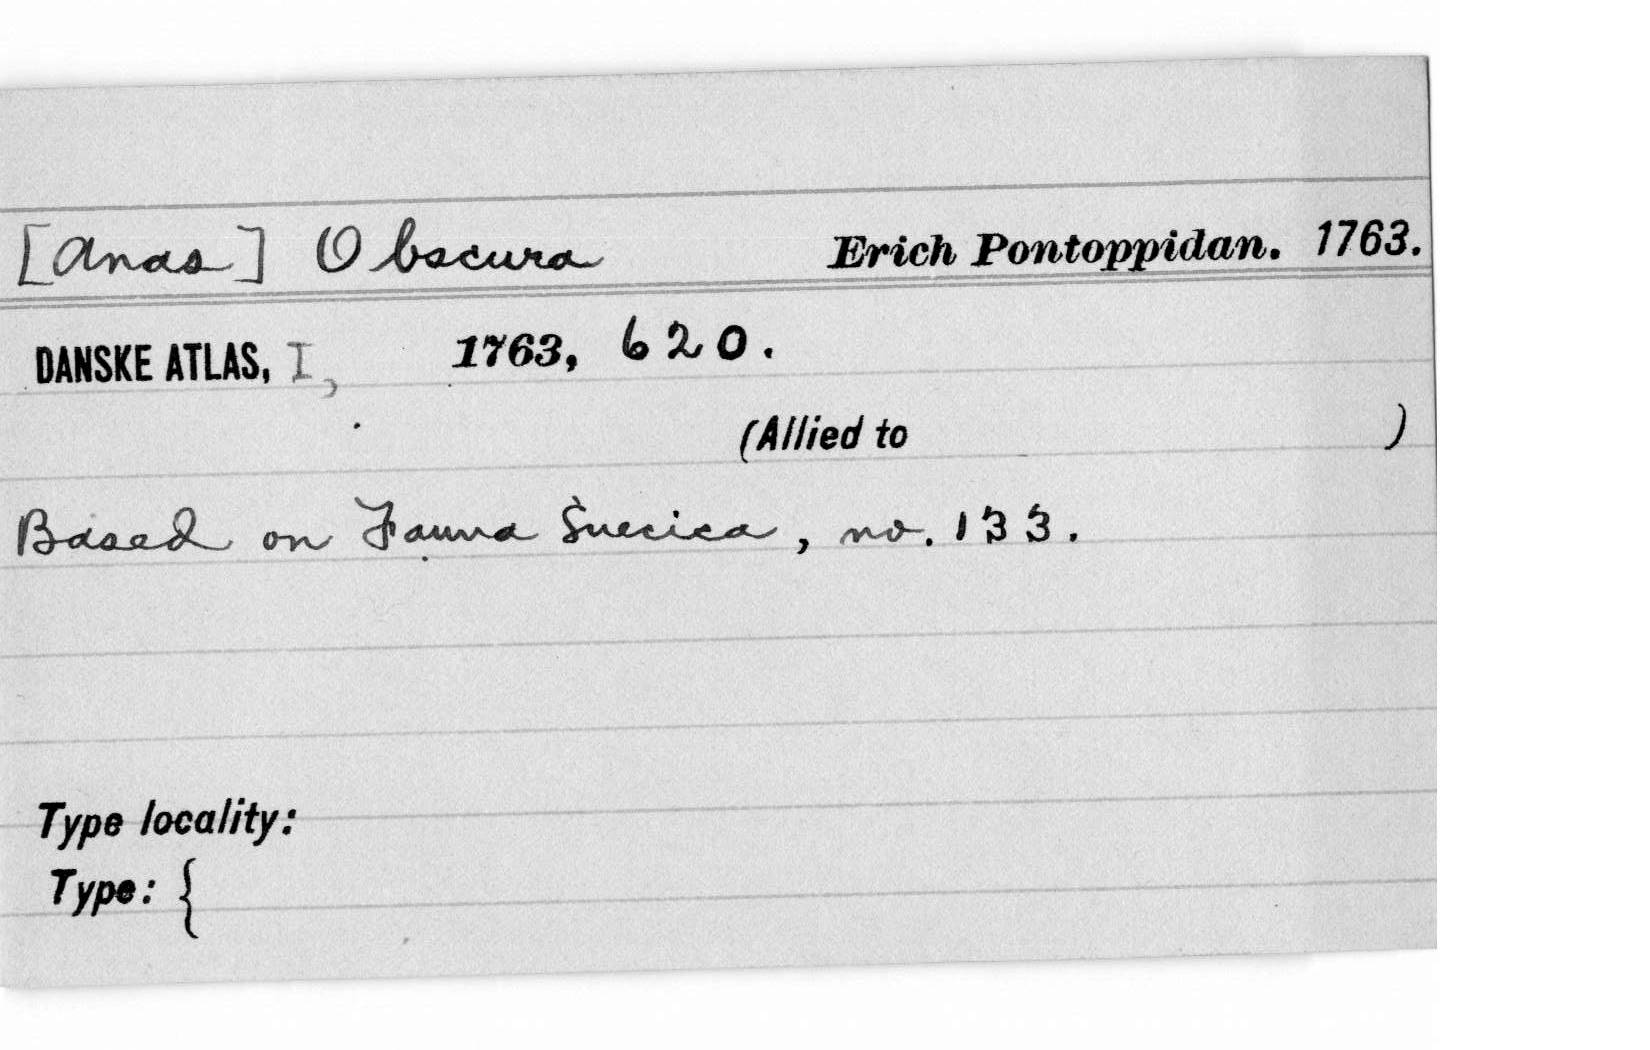 [Anas] Obscura Erich Pontoppidan. 1763.
DANSKE ATLAS, I, 1763, 620.
(Allied to )
Based on Fauna Suecica, no. 133.
Type locality:
Type: {